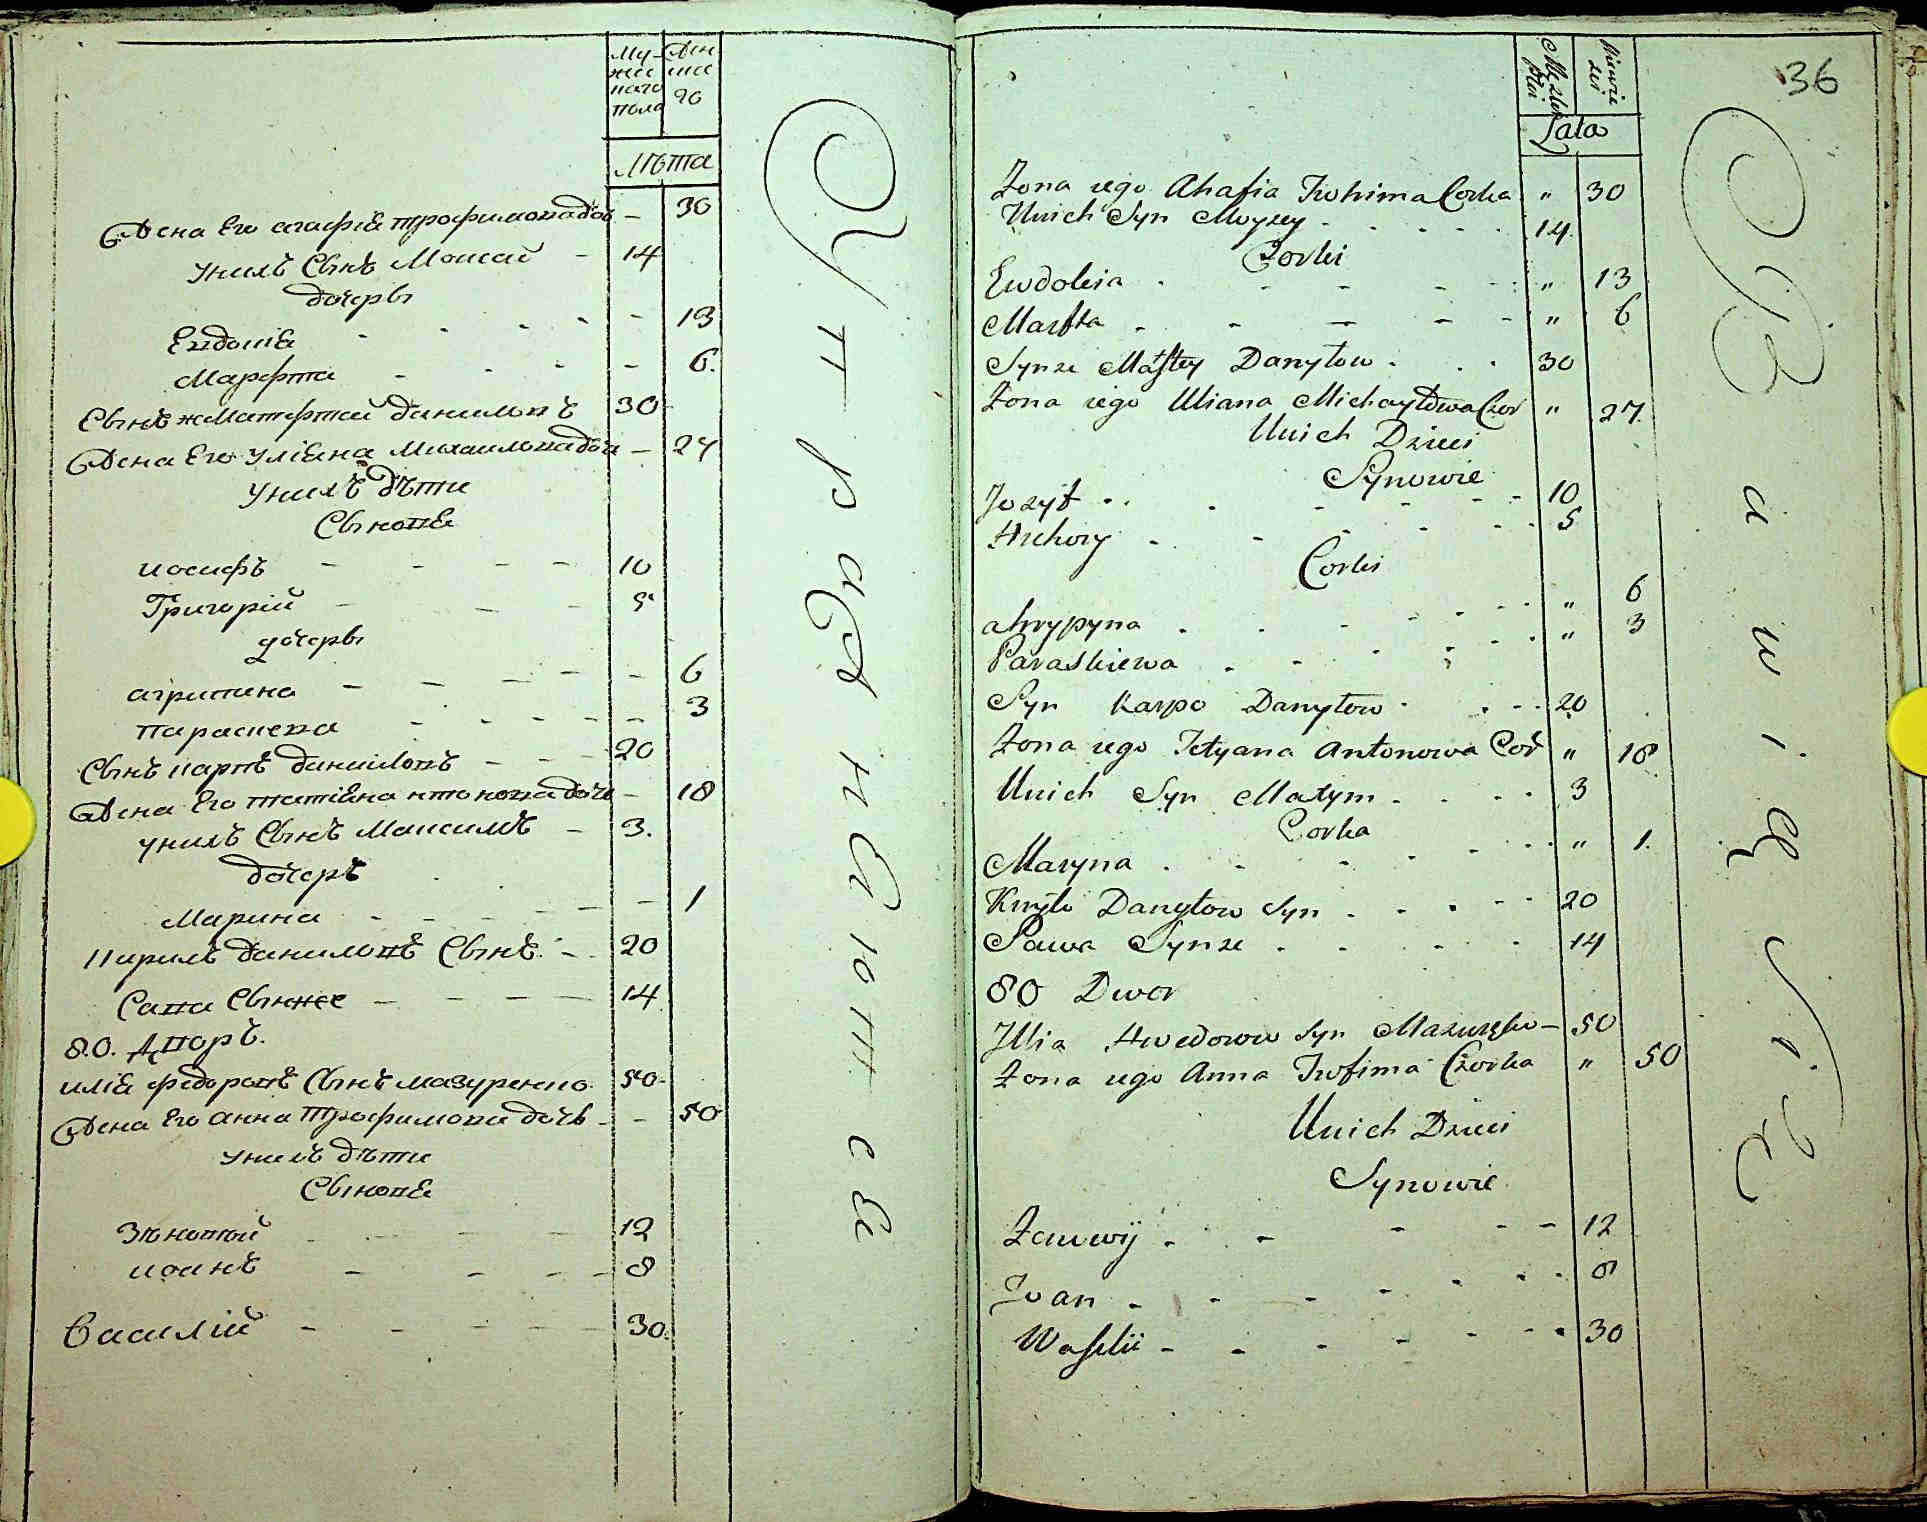 Му-
жес
каго
пола
Жен
ска
го
Лѣта
Жена Его агафія трофимова доч - 30
унихъ Сынъ Моисей - 14
дочеры
Евдокія - 13
Марфта - 6.
Сынъ же Матфтей данилопъ 30
Жена Его уліяна Михаилова доч - 27
унихъ дѣти
Сыновя
иосифъ - 10
Григорій - 5
дочеры
агрипина - 6
параскева - 3
Сынъ карпъ даниловъ - 20
Жена Его татіяна нтонова доч - 18
унихъ Сынъ Максимъ - 3.
дочеръ
Марина - 1
Кирилъ даниловъ Сынъ - 20
Сава Сынже - 14
80. Дворъ.
илія федоровъ Сынъ мазуренко 50
Жена Его анна трофимова дочь - 50
унихъ дѣти
Сыновя
Зѣновій - 12
иоанъ - 8
Василій - 30.
Управляютсе
36
Męzkiey
płci
Niewie
sci
Lata
Żona iego Ahafia Trohima Corka " 30
Unich Syn Moyzey - 14.
Corki
Ewdokia - " 13
Marfta - " 6
Syn ze Mátftey Danyłow - 30
Żona iego Uliana Michayłowa Cor " 27.
Unich Dzieci
Synowie
Jozyf - 10
Hrehory - 5
Corki
ahrypyna - " 6
Paraskiewa - " 3
Syn Karpo Danyłow - 20
Żona iego Tetyana Antonowa Cor " 18
Unich Syn Maxym - 3
Corka
Maryna - " 1.
Kiryło Danyłow Syn - 20
Sawa Syn ze - 14
80 Dwor
Illia Hwedorow Syn Mazurenko - 50
Żona iego Anna Trofima Czorka " 50
Unich Dzieci
Synowie
Zenowij - 12
Iwan - 8
Wasilii - 30